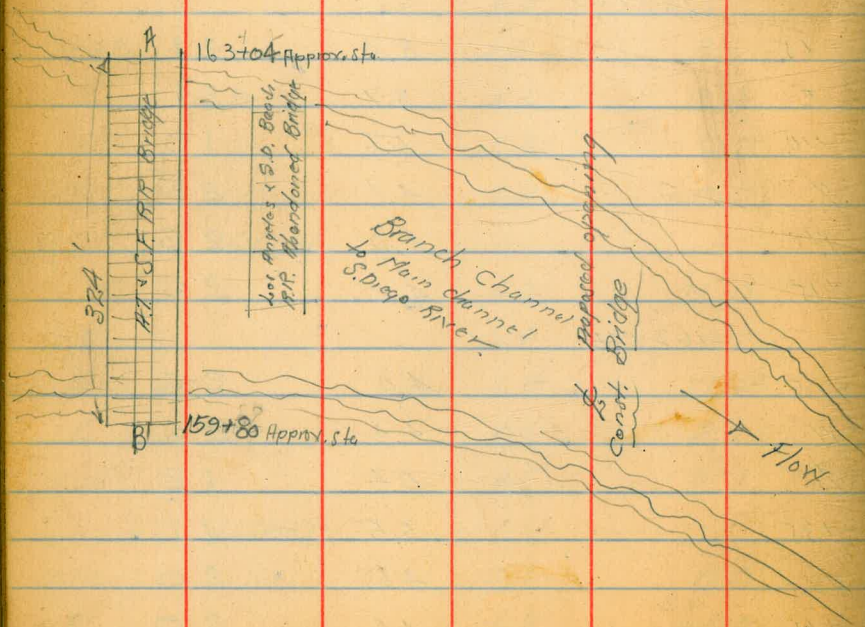 A
163+04 Approx. sta
A.T. & S.F. R.R. Bridge
324'
Los Angeles & S.D. Beach
R.R. Abandoned Bridge
Branch Channel
to Main channel
S. Diego River
℄ Proposed opening
Const. Bridge
Flow
B
159+80 Approx. sta